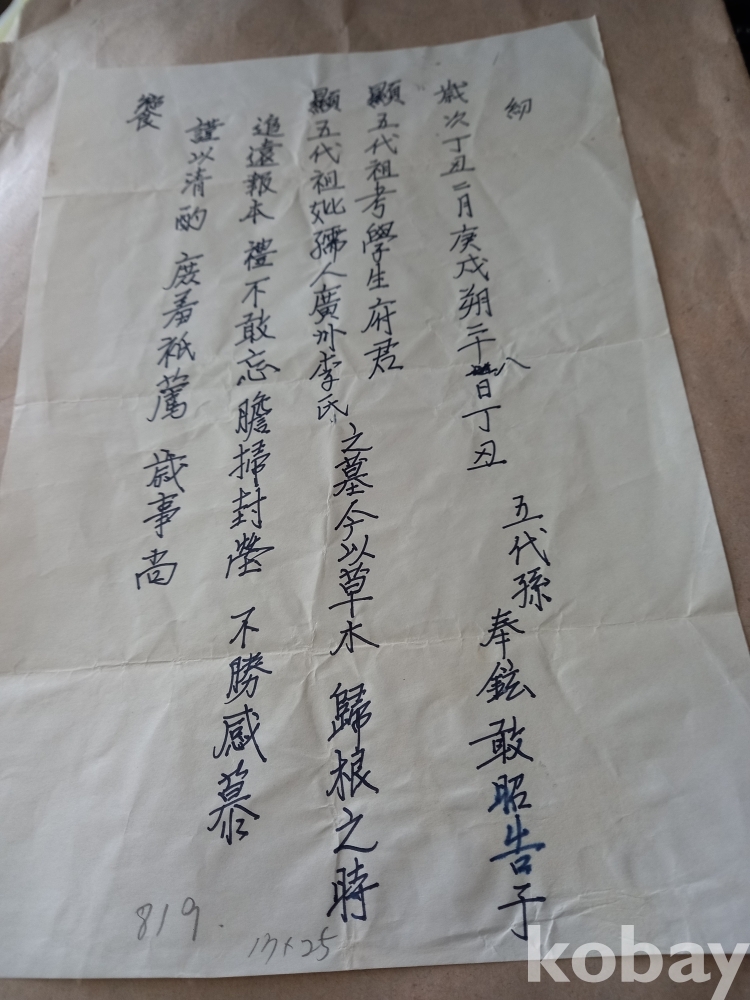 紉
歲次丁丑二月庚戌朔二十八日丁丑 五代孫奉鉉敢昭告于
顯五代祖考學生府君
顯五代祖妣孺人廣州李氏 之墓今以草木 歸根之時
追遠報本 禮不敢忘 膽掃封塋 不勝感慕
謹以清酌 庶羞祇薦 歲事尚
饗
819.
17×25
kobay